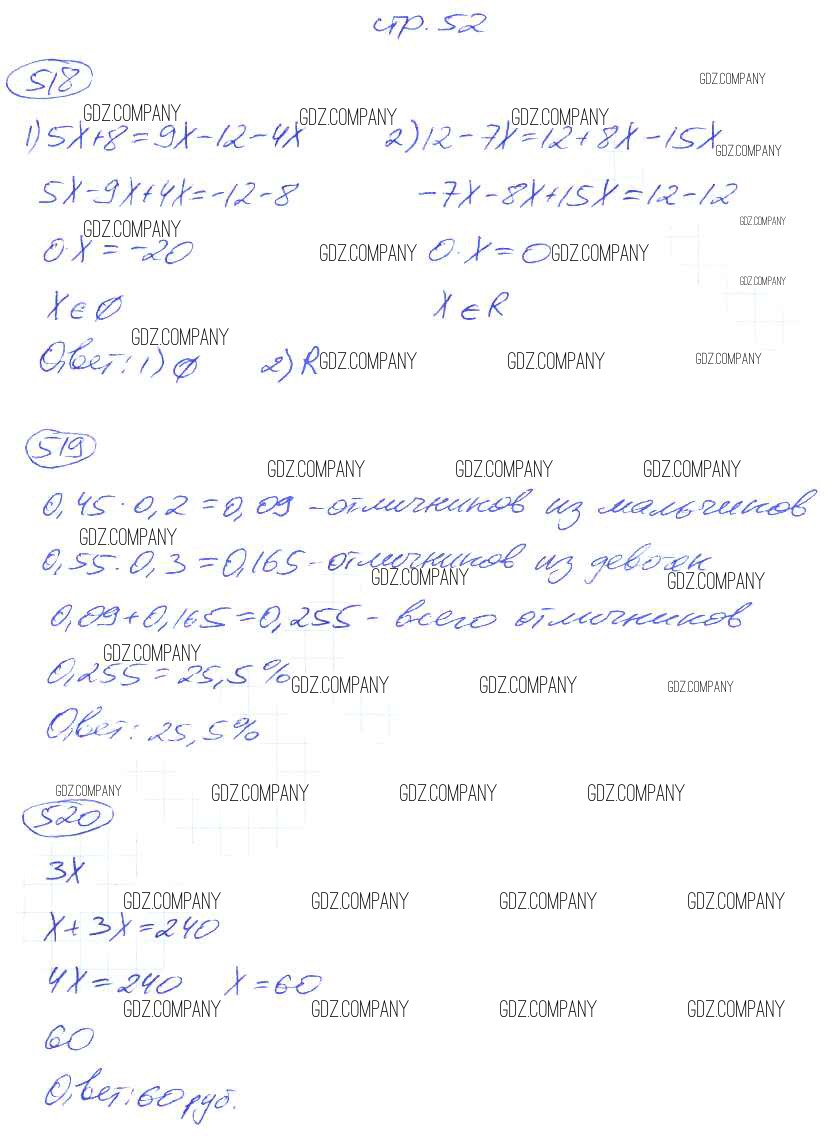 стр. 52
518
GDZ.COMPANY
GDZ.COMPANY GDZ.COMPANY GDZ.COMPANY
1) 5x+8=9x-12-4x 2) 12-7x=12+8x-15x
GDZ.COMPANY
5x-9x+4x=-12-8 -7x-8x+15x=12-12
GDZ.COMPANY GDZ.COMPANY
0·x=-20 GDZ.COMPANY 0·x=0 GDZ.COMPANY
GDZ.COMPANY
x∈∅ x∈R
GDZ.COMPANY
Ответ: 1) ∅ 2) R GDZ.COMPANY GDZ.COMPANY GDZ.COMPANY
519
GDZ.COMPANY GDZ.COMPANY GDZ.COMPANY
0,45·0,2=0,09 - отличников из мальчиков
GDZ.COMPANY
0,55·0,3=0,165 - отличников из девочек
GDZ.COMPANY GDZ.COMPANY
0,09+0,165=0,255 - всего отличников
GDZ.COMPANY
0,255=25,5% GDZ.COMPANY GDZ.COMPANY GDZ.COMPANY
Ответ: 25,5%
GDZ.COMPANY GDZ.COMPANY GDZ.COMPANY GDZ.COMPANY
520
3x
GDZ.COMPANY GDZ.COMPANY GDZ.COMPANY GDZ.COMPANY
x+3x=240
4x=240 x=60
GDZ.COMPANY GDZ.COMPANY GDZ.COMPANY GDZ.COMPANY
60
Ответ: 60 руб.